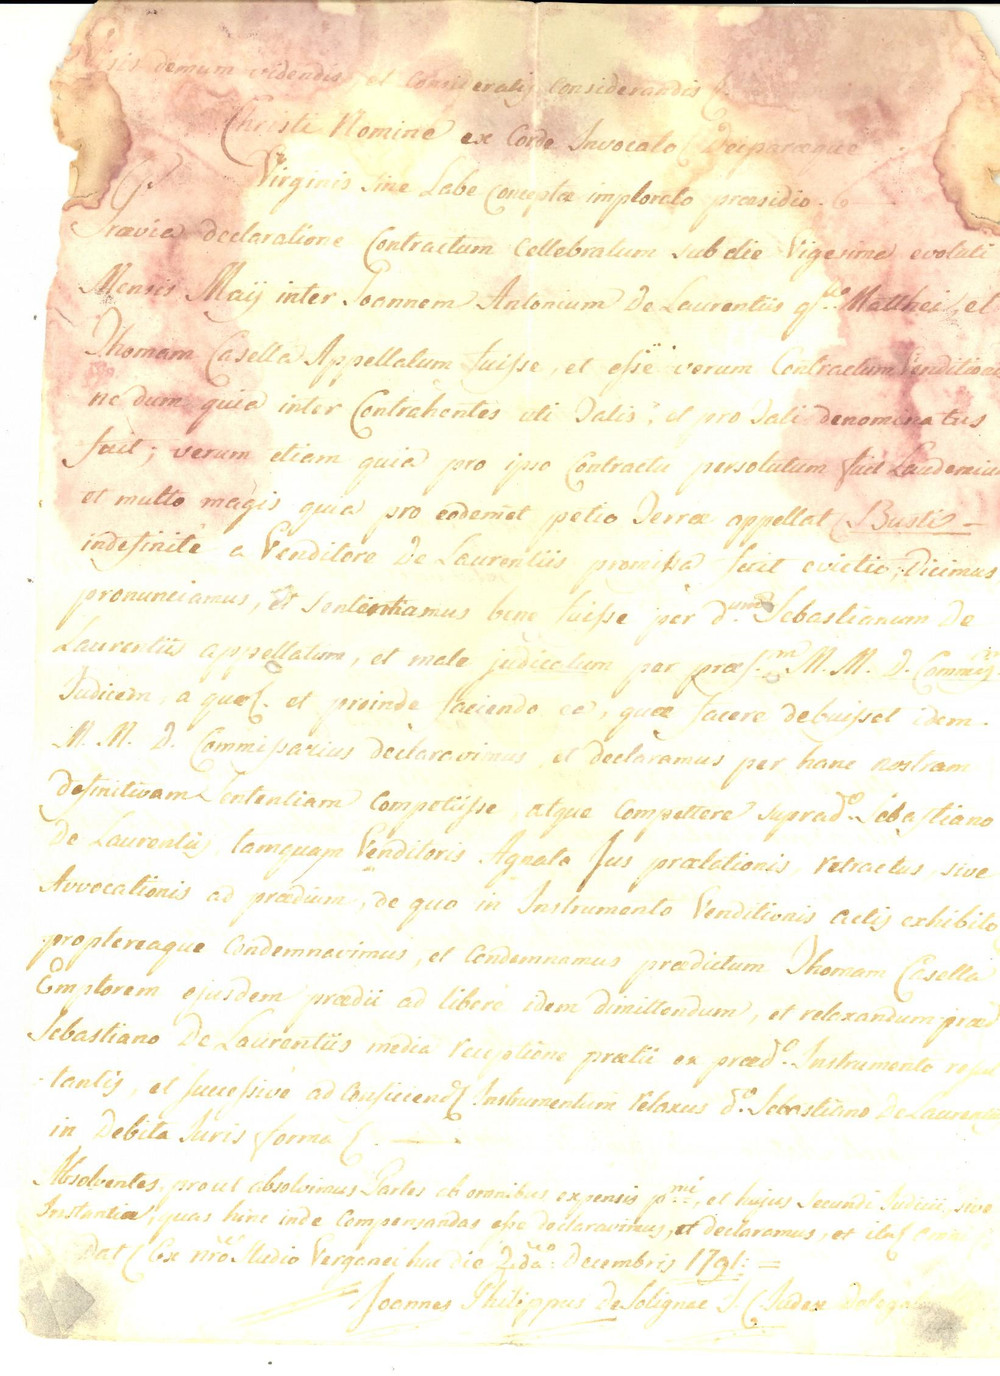 demum videndis, et consideratis considerandis
Christi Nomine ex Corde Invocato Deiparæque
Virginis sine Labe Conceptæ implorato præsidio.
Prævia declaratione Contractum cellebratum sub die Vigesima evoluti
Mensis Maij inter Joannem Antonium De Laurentiis q. Matthei, et
Thomam Casella Appellatum fuisse, et esse verum Contractum Venditionis
ne dum quia inter Contrahentes uti Talis, et pro Tali denominatus
fuit; verum etiam quia pro ipso Contractu persolutum fuit Laudemium
et multo magis quia pro eodemet petio Terræ appellat Busti =
indefinitè a Venditore De Laurentiis promissa fuit evictio, Dicimus
pronunciamus, et sententiamus bene fuisse per d.um Sebastianum De
Laurentiis appellatum, et male judicatum per præf.m M. M. D. Commiss.
Judicem, a quo et proinde faciendo ea, quæ facere debuisset idem
M. M. D. Commissarius declaravimus, et declaramus per hanc nostram
definitivam Sententiam Competiisse, atque Competere suprad.o Sebastiano
De Laurentiis, tamquam Venditoris Agnato Jus prælationis, retractus, sive
Avvocationis ad prædium, de quo in Instrumento Venditionis actis exhibito
proptereaque Condemnavimus, et Condemnamus prædictum Thomam Casella
Emptorem ejusdem prædii ad liberè idem dimittendum, et relaxandum præd
Sebastiano De Laurentiis media receptione prætii ex præd.o Instrumento resul
-tantis, et successivè ad Conficiend Instrumentum relaxus d.o Sebastiano De Laurentiis
in Debita Juris forma
Absolventes, prout absolvimus Partes ab omnibus expensis p.mi, et hujus Secundi Judicii, sive
Instantiæ, quas hinc inde Compensandas esse declaravimus, et declaramus, et ita omni
Dat Ex nrô Studio Verganei hac die 2.da Decembris 1791: =
Joannes Philippus De Solignac J. C. Judex Delega